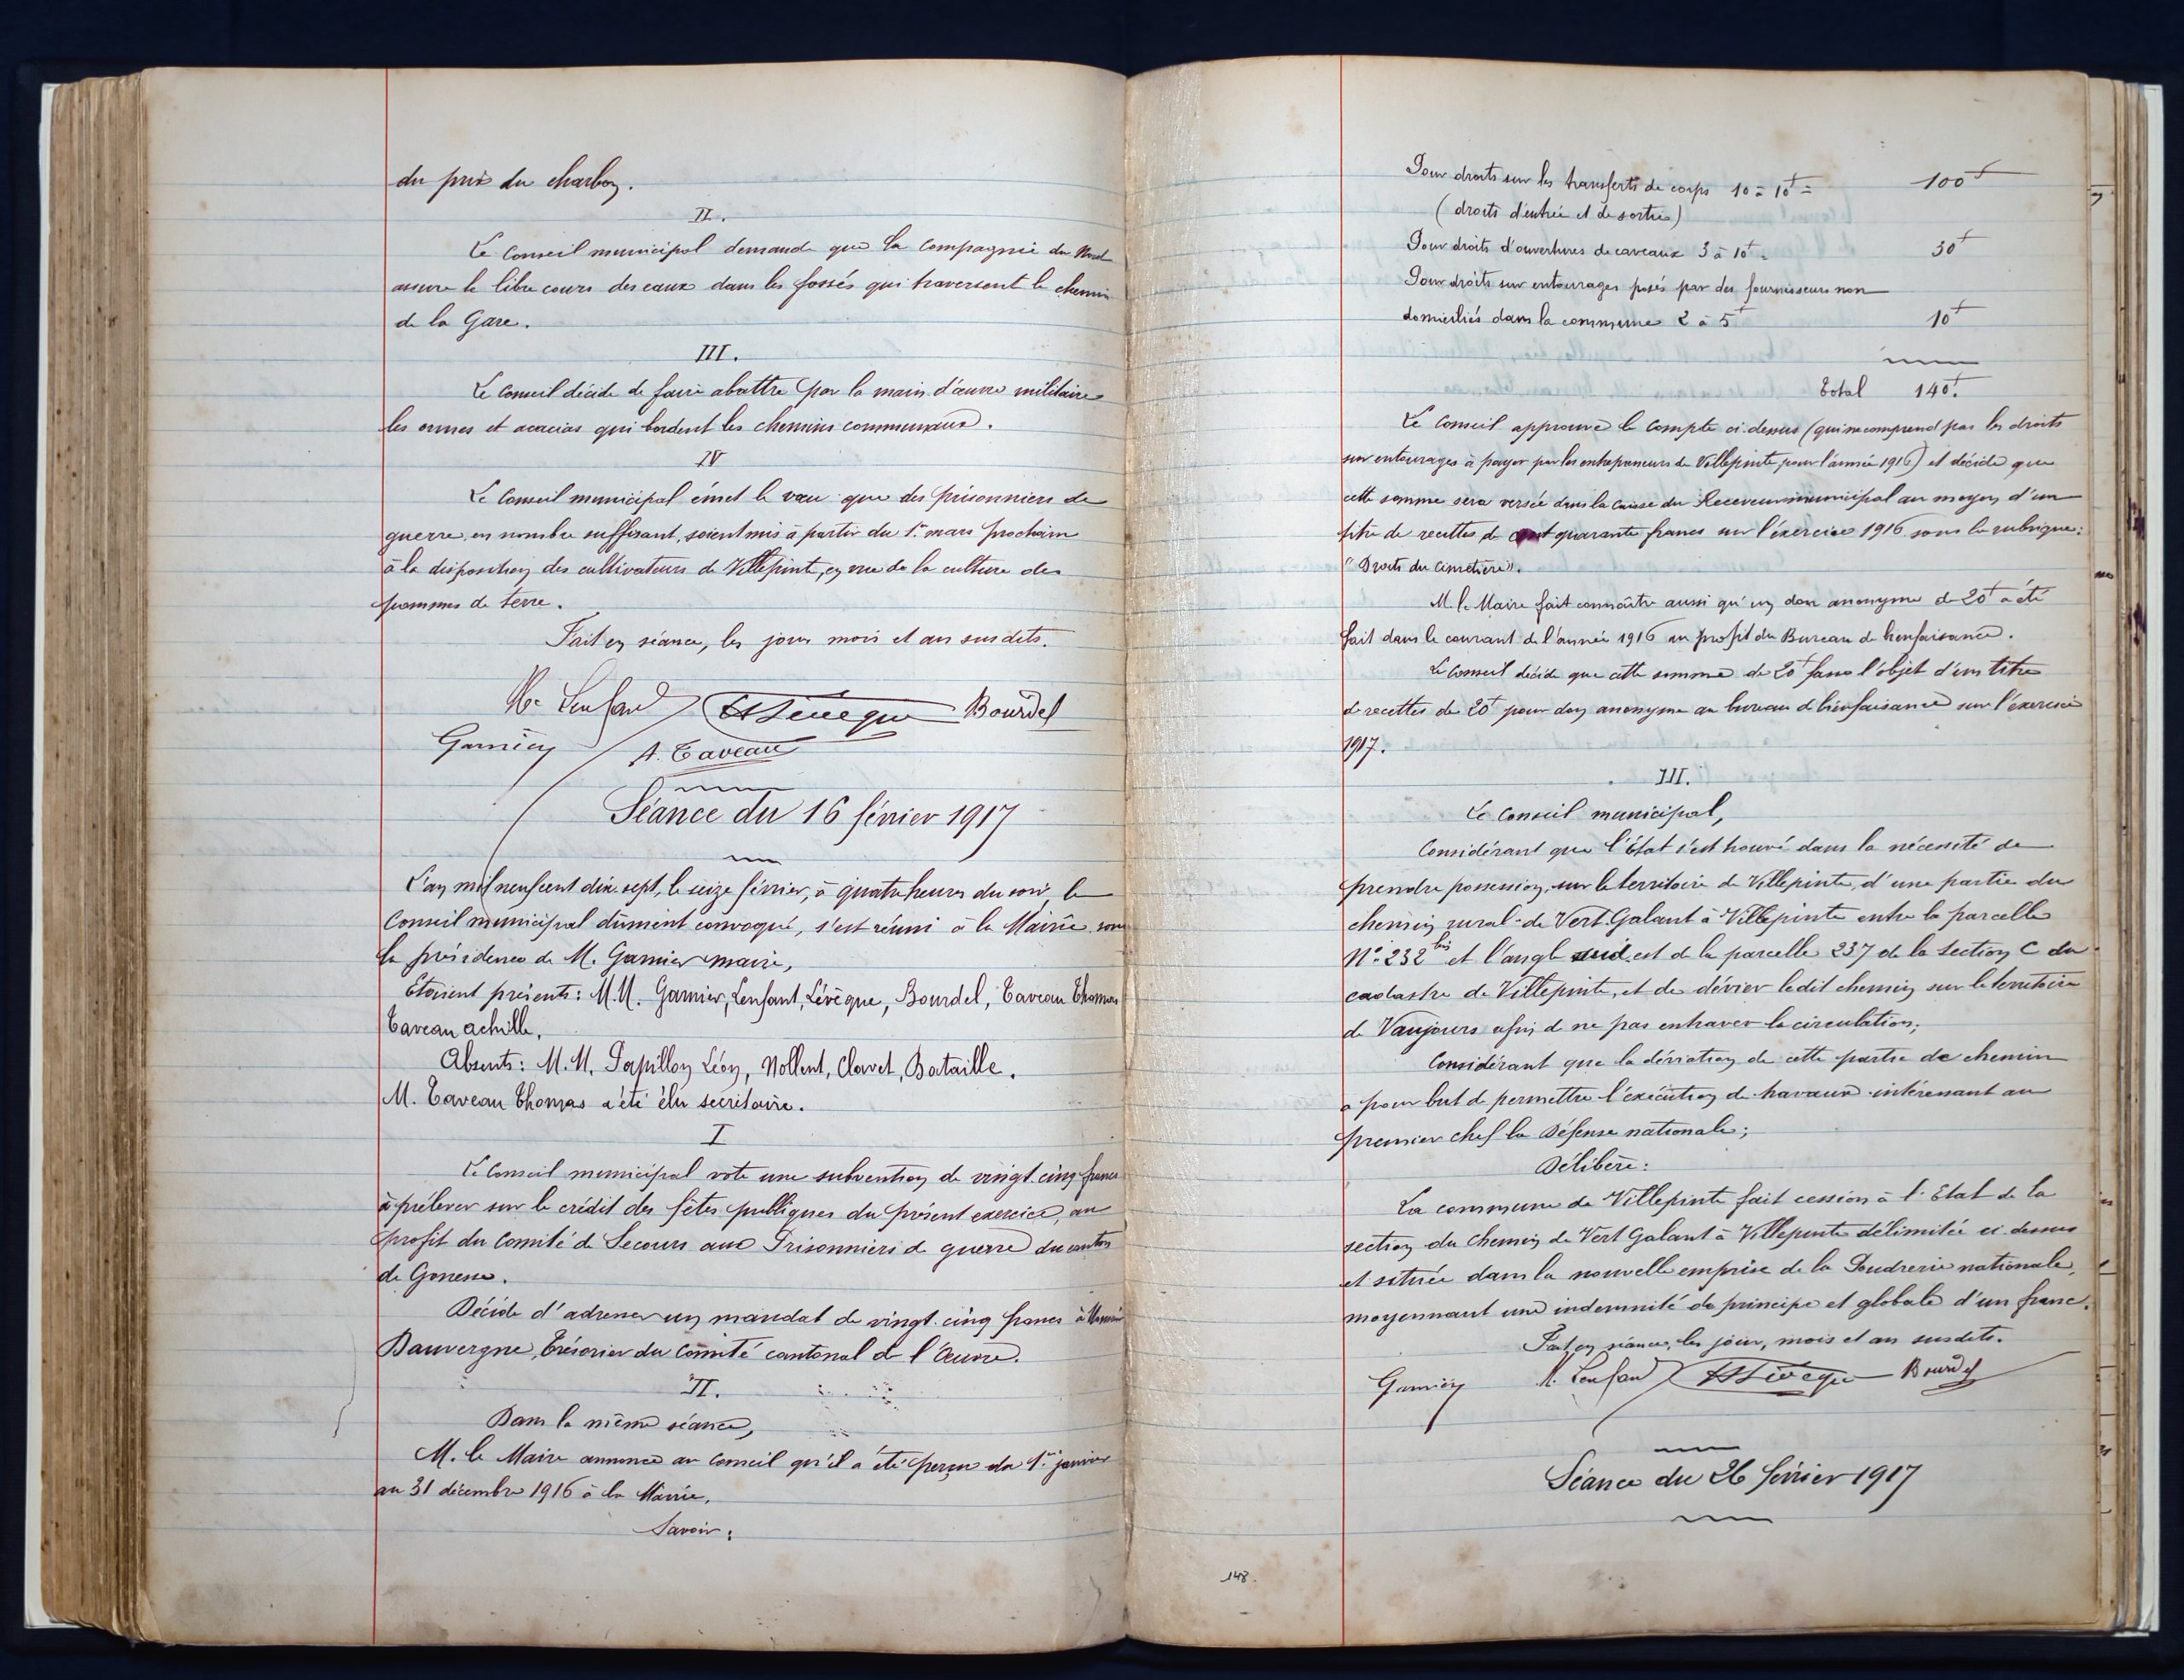 du prix du charbon.
II.
Le Conseil municipal demande que la Compagnie du Nord
assure le libre cours des eaux dans les fossés qui traversent le chemin
de la Gare.
III.
Le Conseil décide de faire abattre par la main d'œuvre militaire
les ormes et acacias qui bordent les chemins communaux.
IV
Le Conseil municipal émet le vœu que des prisonniers de
guerre, en nombre suffisant, soient mis à partir du 1er mars prochain
à la disposition des cultivateurs de Villepinte, en vue de la culture des
pommes de terre.
Fait en séance, les jour mois et an susdits.
Lenfant Lévêque Bourdel
Garnier A. Taveau
Séance du 16 février 1917
L'an mil neuf cent dix sept, le seize février, à quatre heures du soir, le
Conseil municipal dûment convoqué, s'est réuni à la Mairie sous
la présidence de M. Garnier maire,
Etaient présents: M.M. Garnier, Lenfant, Lévêque, Bourdel, Taveau Thomas
Taveau achille.
Absents: M.M. Papillon Léon, Nollent, Clavet, Bataille.
M. Taveau Thomas a été élu secrétaire.
I
Le Conseil municipal vote une subvention de vingt cinq francs
à prélever sur le crédit des fêtes publiques du présent exercice, au
profit du Comité de Secours aux Prisonniers de guerre du canton
de Gonesse.
Décide d'adresser un mandat de vingt cinq francs à Monsieur
Dauvergne, Trésorier du Comité cantonal de l'Œuvre.
II.
Dans la même séance,
M. le Maire annonce au Conseil qu'il a été perçu du 1er janvier
au 31 décembre 1916 à la Mairie,
Savoir:
Pour droits sur les transferts de corps 10 à 10f = 100f
(droits d'entrée et de sortie)
Pour droits d'ouvertures de caveaux 3 à 10f = 30f
Pour droits sur entourages posés par des fournisseurs non
domiciliés dans la commune 2 à 5f 10f
Total 140f.
Le Conseil approuve le Compte ci-dessus (qui ne comprend pas les droits
sur entourages à payer par les entrepreneurs de Villepinte pour l'année 1916) et décide que
cette somme sera versée dans la caisse du Receveur municipal au moyen d'un
titre de recettes de cent quarante francs sur l'exercice 1916 sous la rubrique:
"Droits du cimetière".
M. le Maire fait connaître aussi qu'un don anonyme de 20f a été
fait dans le courant de l'année 1916 au profit du Bureau de bienfaisance.
Le Conseil décide que cette somme de 20f fera l'objet d'un titre
de recettes de 20f pour don anonyme au bureau de bienfaisance sur l'exercice
1917.
III.
Le Conseil municipal,
Considérant que l'État s'est trouvé dans la nécessité de
prendre possession, sur le territoire de Villepinte, d'une partie du
chemin rural de Vert Galant à Villepinte entre la parcelle
No 232 bis et l'angle sud est de la parcelle 237 de la section C du
cadastre de Villepinte, et de dévier ledit chemin sur le territoire
de Vaujours afin de ne pas entraver la circulation;
Considérant que la déviation de cette partie de chemin
a pour but de permettre l'exécution de travaux intéressant au
premier chef la Défense nationale;
Délibère:
La commune de Villepinte fait cession à l'Etat de la
section du Chemin de Vert Galant à Villepinte délimitée ci-dessus
et située dans la nouvelle emprise de la Poudrerie nationale,
moyennant une indemnité de principe et globale d'un franc.
Fait en séance, les jour, mois et an susdits.
Garnier Lenfant Lévêque Bourdel
Séance du 26 février 1917
148.